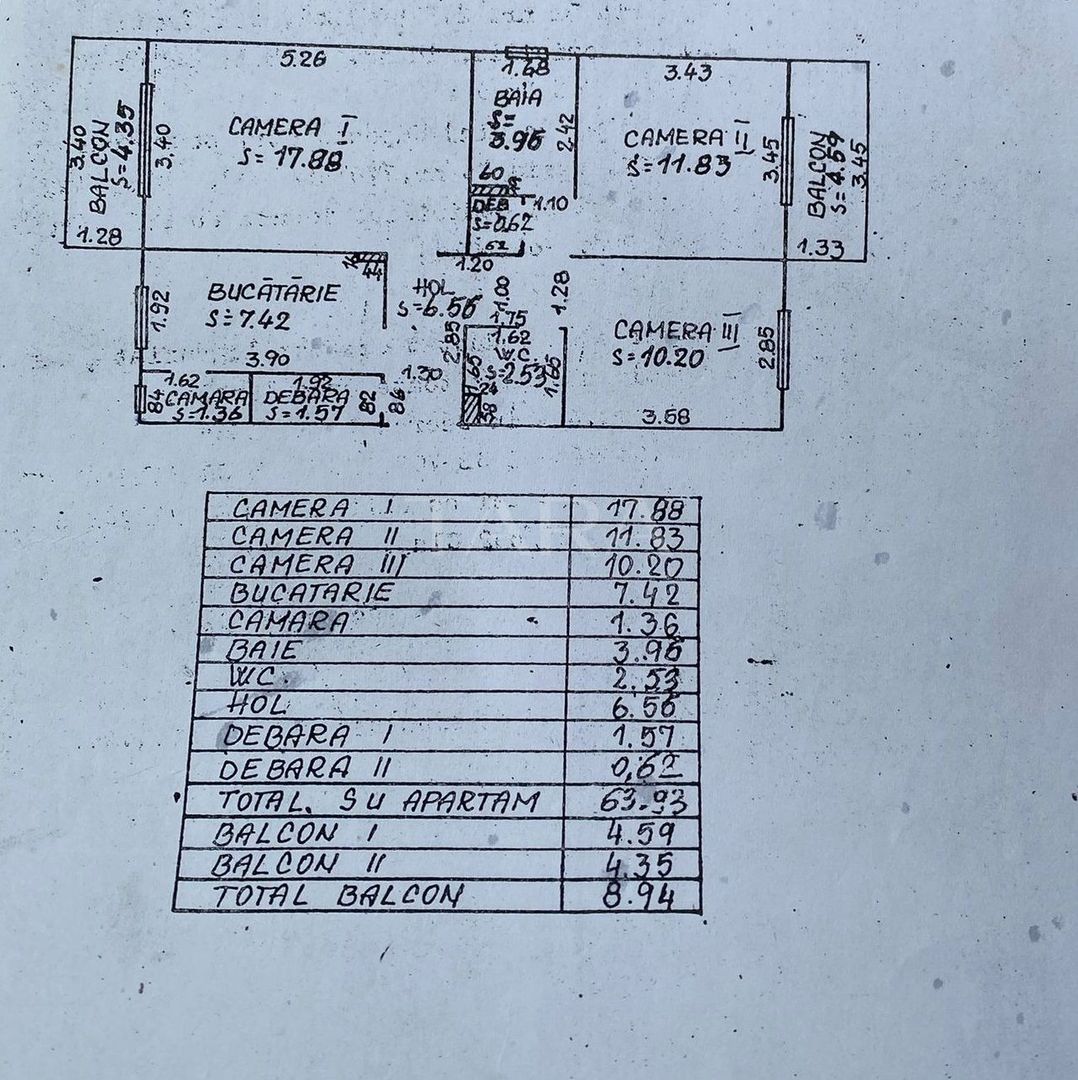 5.26
1.68
3.43
BALCON
S=4.35
3.40
3.40
CAMERA I
S=17.88
BAIA
S=
3.96
2.42
CAMERA II
S=11.83
3.45
BALCON
S=4.59
3.45
60
DEB
S=0.62
62
1.10
1.28
1.20
1.33
BUCĂTĂRIE
S=7.42
1.92
44
HOL
S=6.56
1.00
1.28
1.75
CAMERA III
S=10.20
2.85
3.90
2.85
1.62
W.C.
S=2.53
1.65
1.65
1.30
1.62
CAMARA
S=1.36
84
1.92
DEBARA
S=1.57
82
86
24
38
3.58
CAMERA I 17.88
CAMERA II 11.83
CAMERA III 10.20
BUCATARIE 7.42
CAMARA 1.36
BAIE 3.96
WC. 2.53
HOL 6.56
DEBARA I 1.57
DEBARA II 0,62
TOTAL. SU APARTAM 63.93
BALCON I 4.59
BALCON II 4.35
TOTAL BALCON 8.94